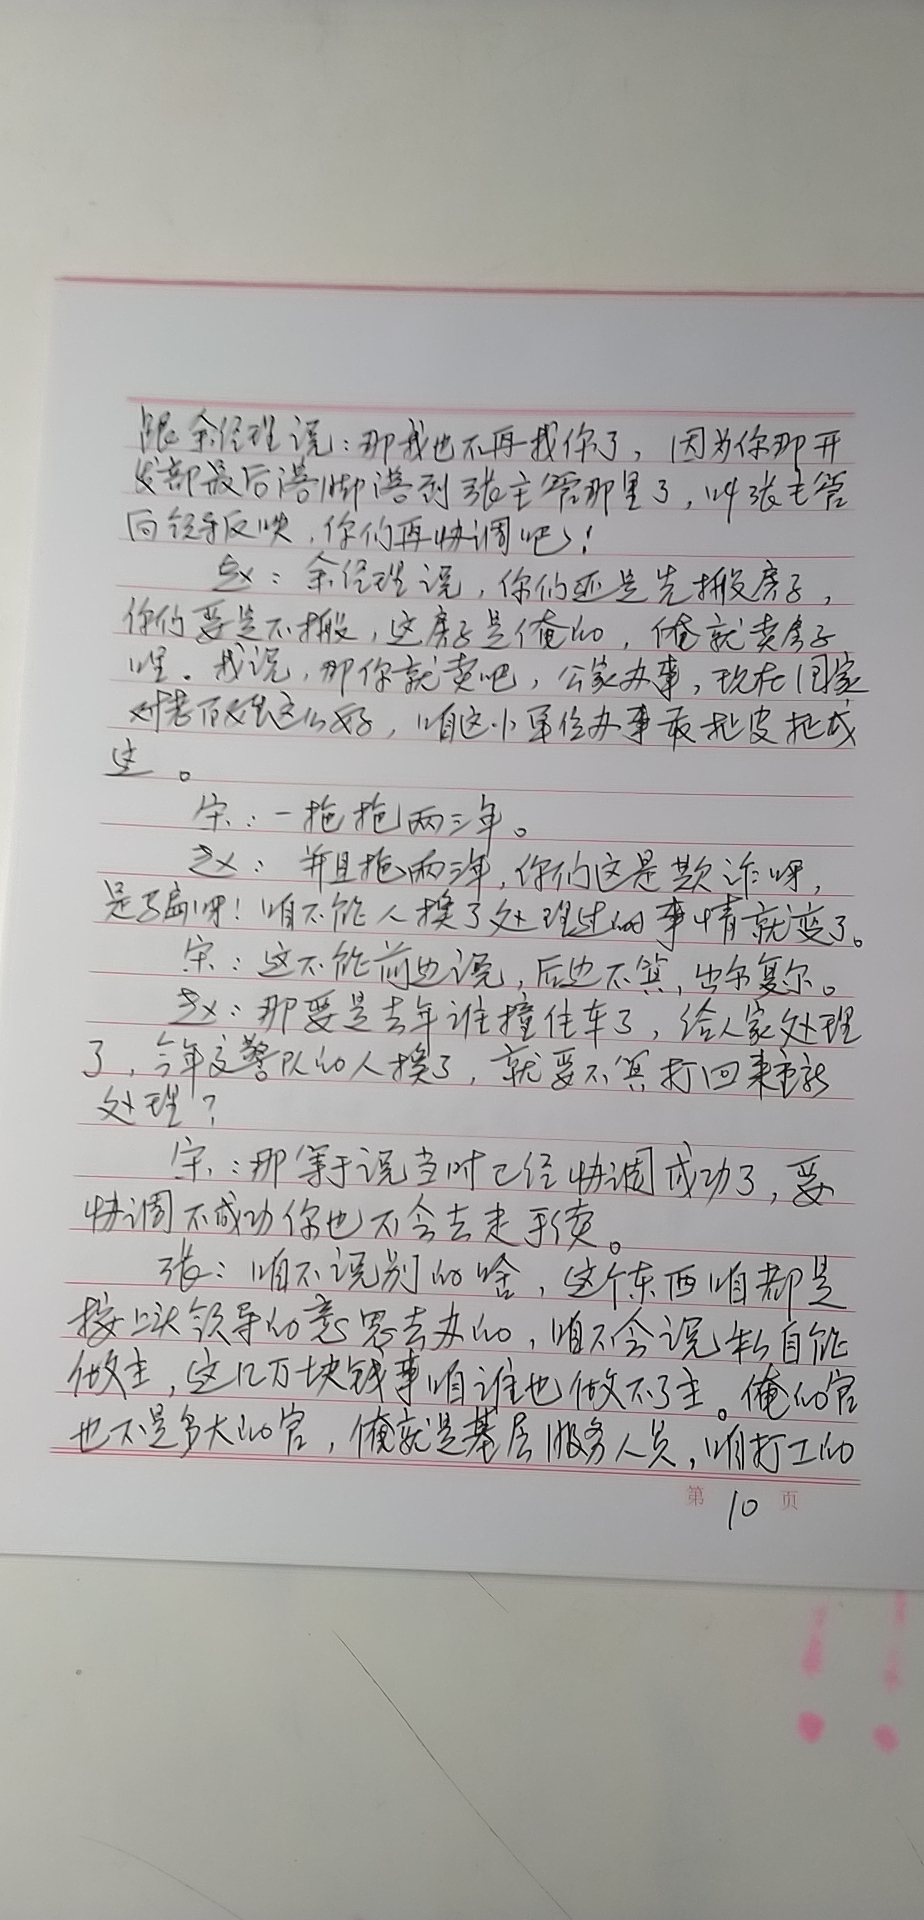 跟余经理说：那我也不再找你了，因为你那开
发部最后落脚落到张主管那里了，叫张主管
向领导反映，你们再协调吧！
赵：余经理说，你们还是先搬房子，
你们要是不搬，这房子是俺的，俺就卖房子
哩。我说，那你就卖吧，公家办事，现在国家
对老百姓这么好，咱这小单位办事敢扯皮扯成
这。
宋：一拖拖两三年。
赵：并且拖两三年，你们这是欺诈呀，
是骗呀！咱不能人换了处理过的事情就变了。
宋：这不能前边说，后边不算，出尔复尔。
赵：那要是去年谁撞住车了，给人家处理
了，今年交警队的人换了，就要不算打回来重新
处理？
宋：那等于说当时已经协调成功了，要
协调不成功你也不会去走手续。
张：咱不说别的啥，这个东西咱都是
按上头领导的意思去办的，咱不会说私自能
做主，这几万块钱事咱谁也做不了主。俺的官
也不是多大的官，俺就是基层服务人员，咱打工的
第 10 页